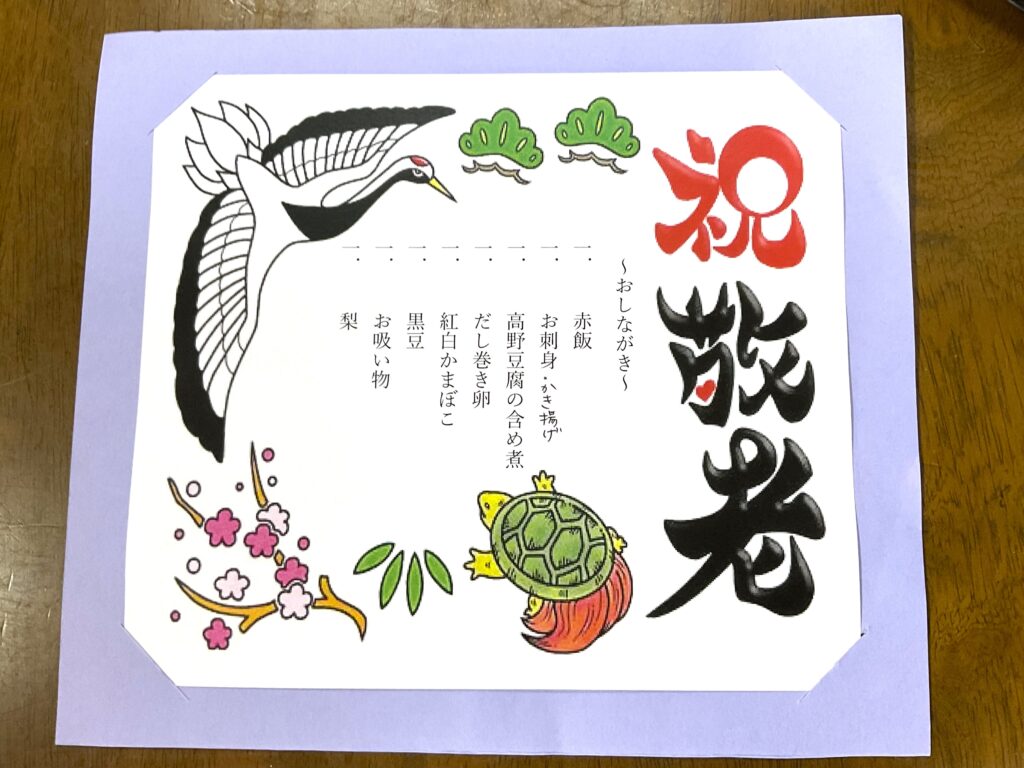 祝敬老
～おしながき～
一．赤飯
一．お刺身・かき揚げ
一．高野豆腐の含め煮
一．だし巻き卵
一．紅白かまぼこ
一．黒豆
一．お吸い物
一．梨